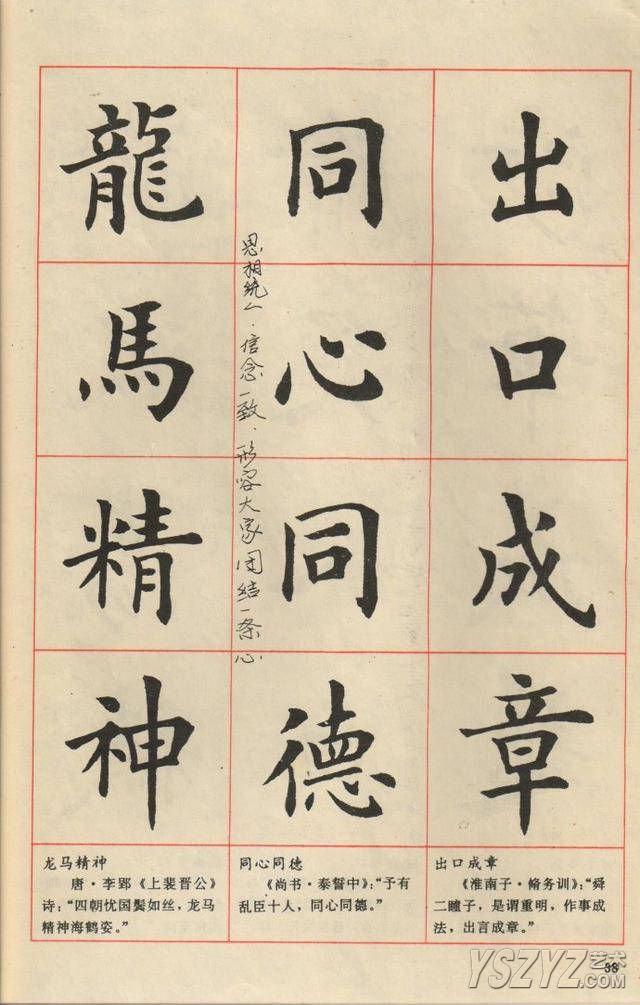 出口成章
同心同德
思相统一.信念一致.形容大家团结一条心.
龍馬精神
出口成章
《淮南子·脩务训》：“舜
二瞳子，是谓重明，作事成
法，出言成章。”
同心同德
《尚书·泰誓中》：“予有
乱臣十人，同心同德。”
龙马精神
唐·李郢《上裴晋公》
诗：“四朝忧国鬓如丝，龙马
精神海鹤姿。”
YSZYZ艺术